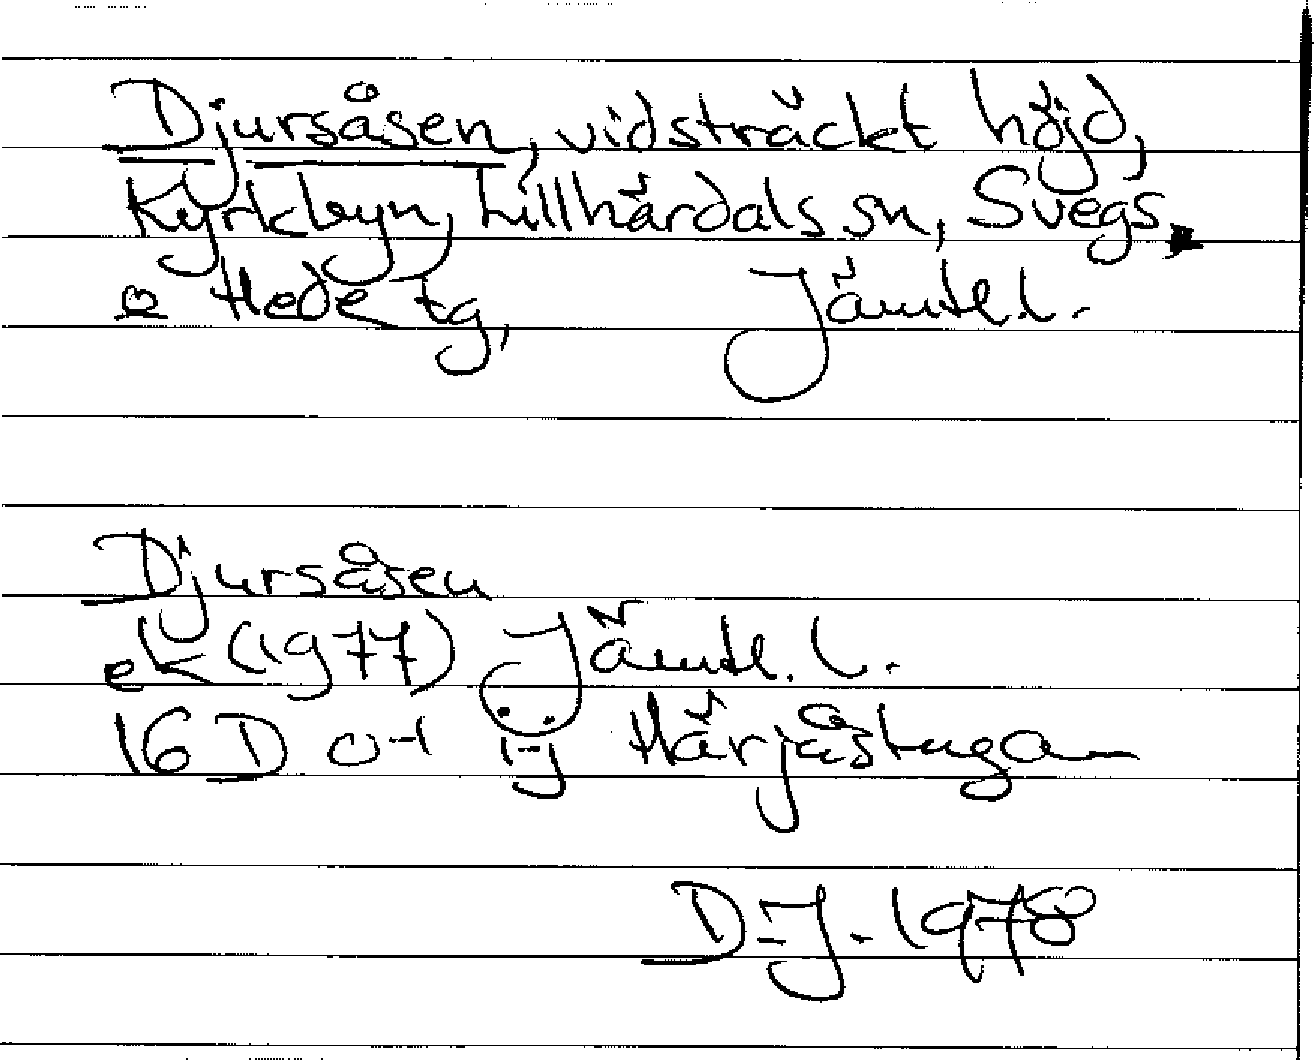 Djursåsen, vidsträckt höjd,
Kyrkbyn, Lillhärdals sn, Svegs
o Hede tg, Jämtl. l.
Djursåsen
ek (1977) Jämtl. l.
16 D 0-1 i-j Härjåstugan
D-J. 1978